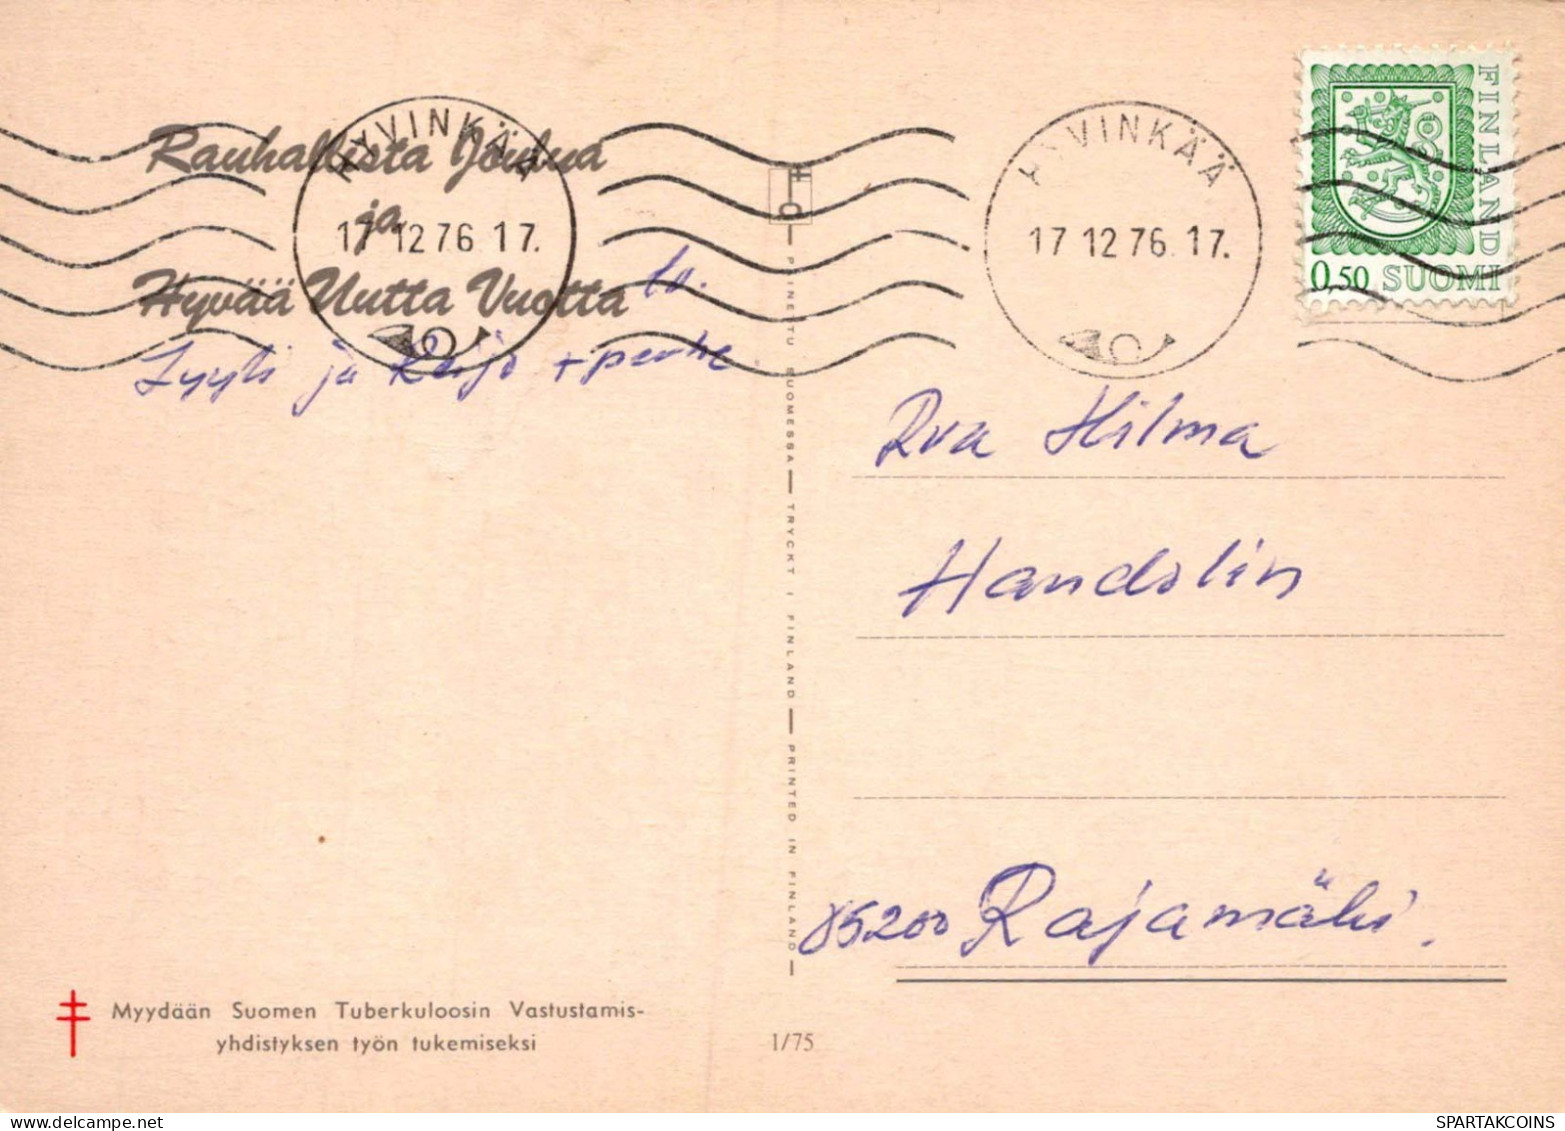 HYVINKÄÄ
17 12 76 17.
HYVINKÄÄ
17 12 76 17.
FINLAND
0,50 SUOMI
Rauhallista Joulua
ja
Hyvää Uutta Vuotta
to.
Lyyli ja Keijo + perhe.
Rva Hilma
Handolin
05200 Rajamäki.
PAINETTU SUOMESSA — TRYCKT I FINLAND — PRINTED IN FINLAND
Myydään Suomen Tuberkuloosin Vastustamis-
yhdistyksen työn tukemiseksi
1/75
delcampe.net
SPARTAKCOINS